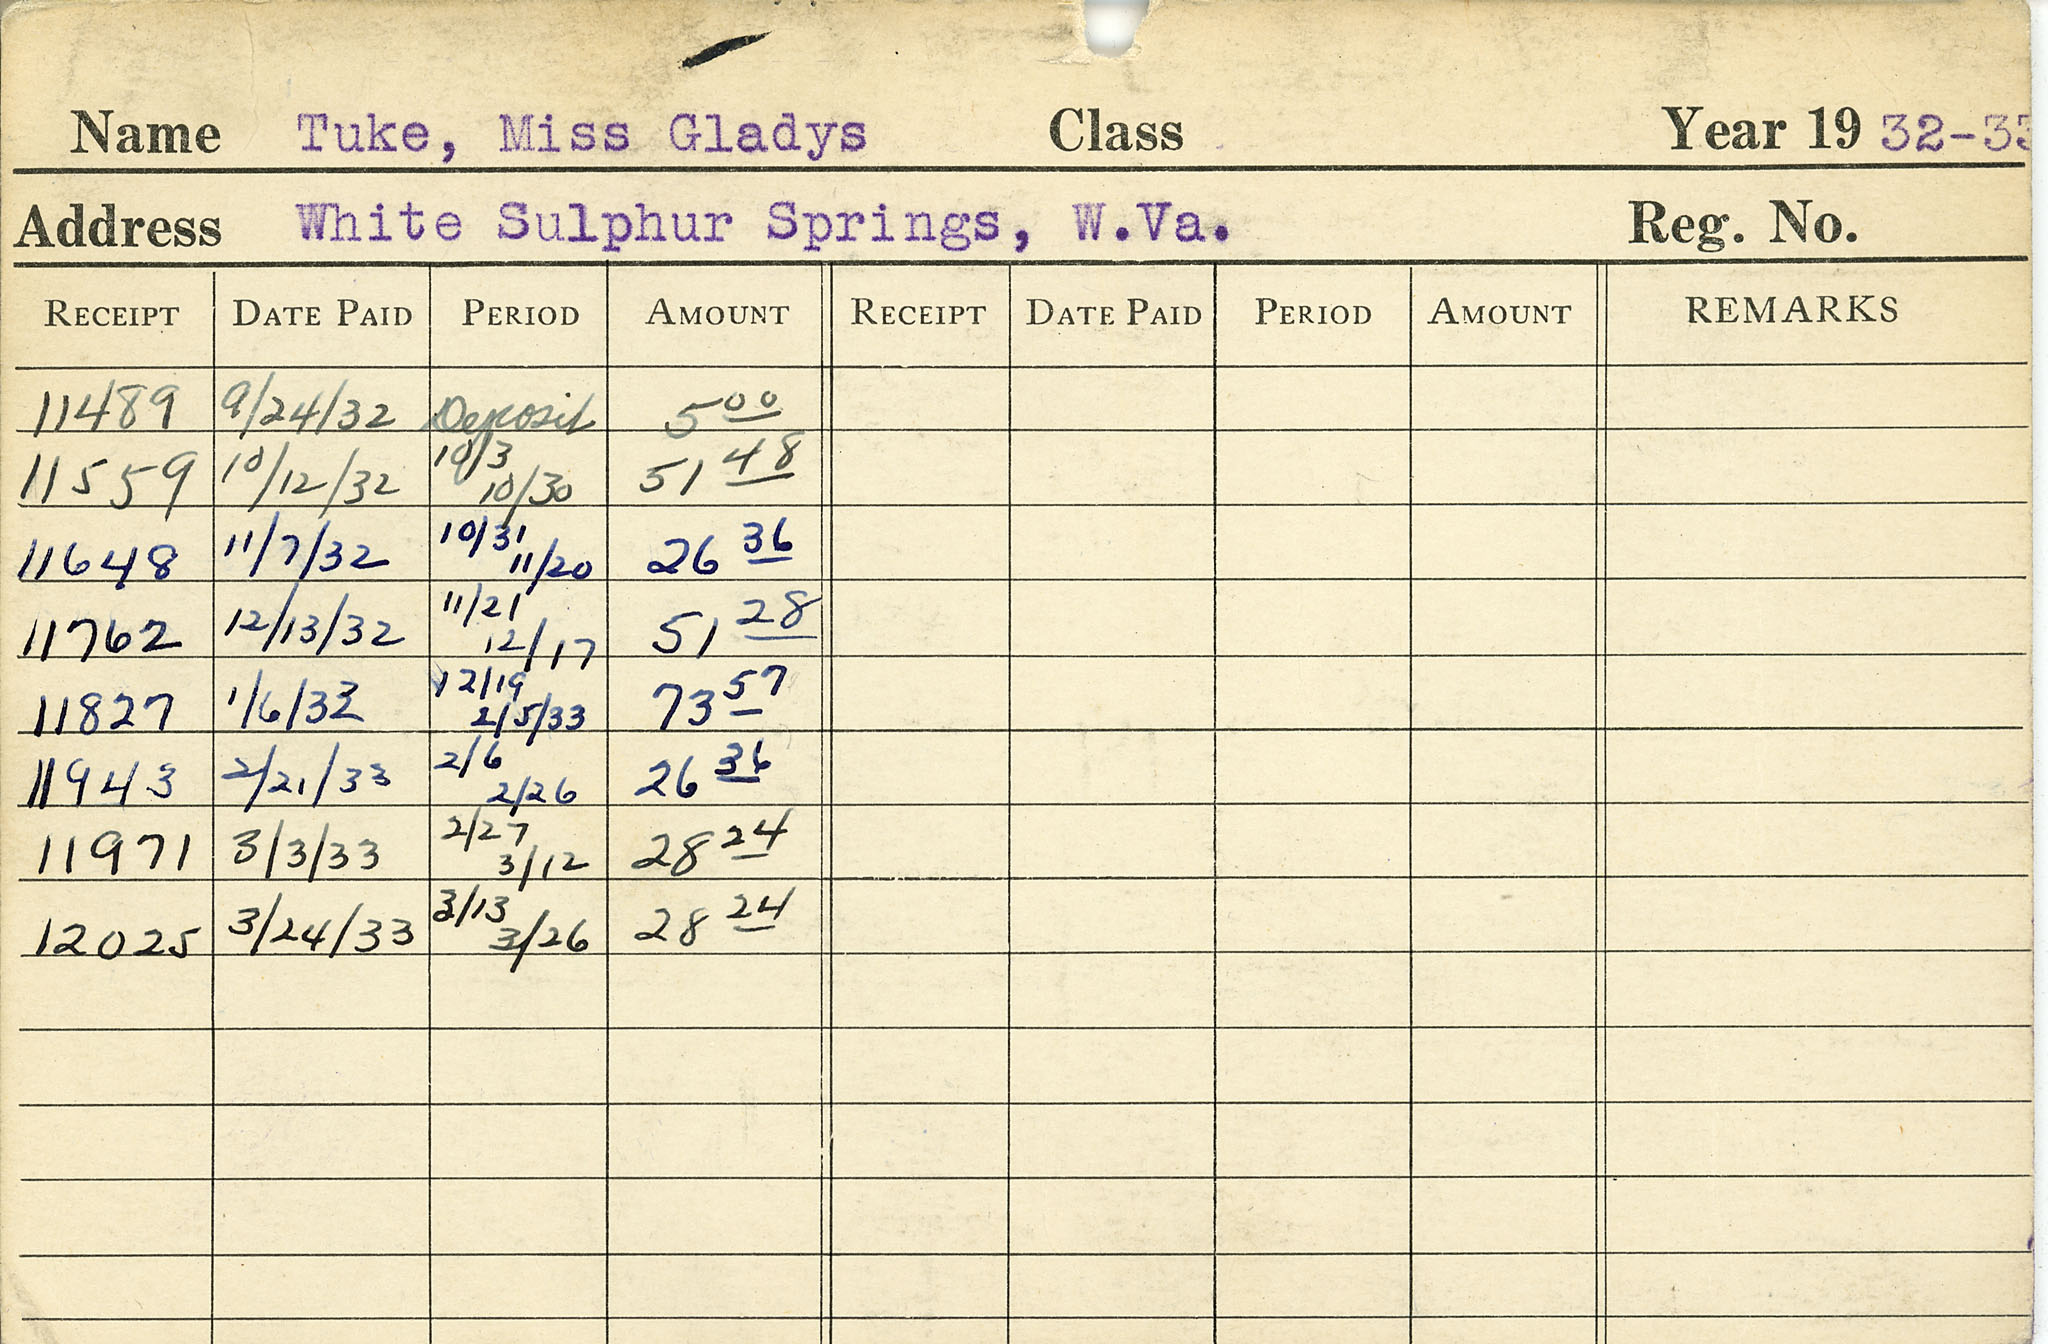 Name Tuke, Miss Gladys Class Year 19 32-33
Address White Sulphur Springs, W.Va. Reg. No.
RECEIPT DATE PAID PERIOD AMOUNT RECEIPT DATE PAID PERIOD AMOUNT REMARKS
11489 9/24/32 Deposit 5 00
11559 10/12/32 10/3 10/30 51 48
11648 11/7/32 10/31 11/20 26 36
11762 12/13/32 11/21 12/17 51 28
11827 1/6/33 12/19 2/5/33 73 57
11943 2/21/33 2/6 2/26 26 36
11971 3/3/33 2/27 3/12 28 24
12025 3/24/33 3/13 3/26 28 24